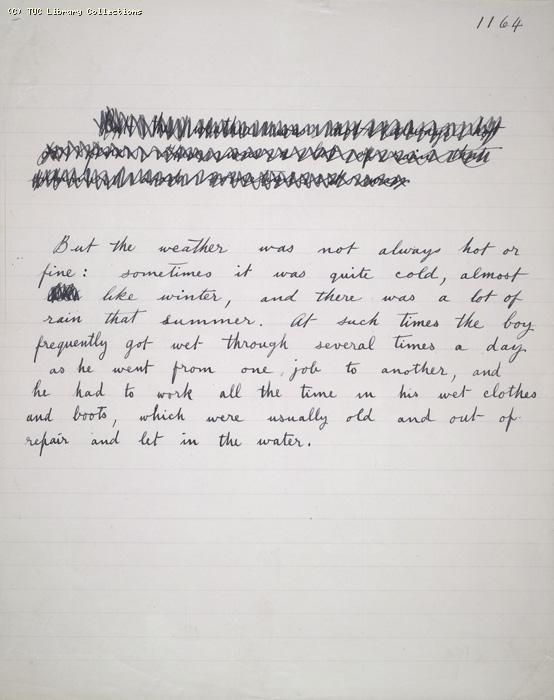 (C) TUC Library Collections
1164
But the weather was not always hot or
fine: sometimes it was quite cold, almost
like winter, and there was a lot of
rain that summer. At such times the boy
frequently got wet through several times a day
as he went from one job to another, and
he had to work all the time in his wet clothes
and boots, which were usually old and out of
repair and let in the water.